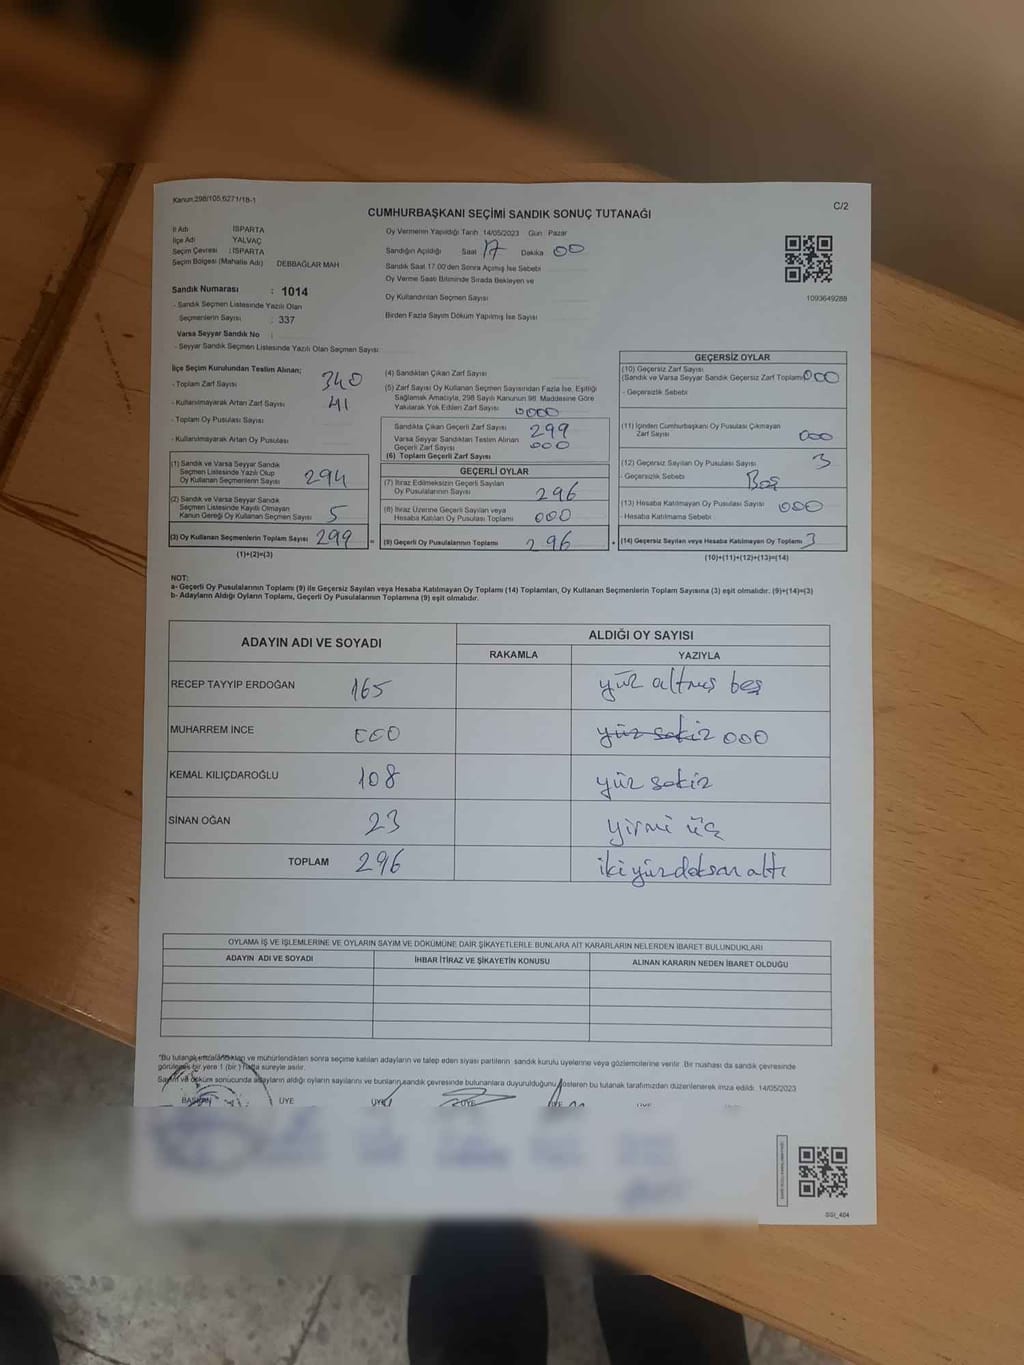 Kanun.298/105,6271/18-1
C/2
CUMHURBAŞKANI SEÇİMİ SANDIK SONUÇ TUTANAĞI
İl Adı ISPARTA
İlçe Adı YALVAÇ
Seçim Çevresi : ISPARTA
Seçim Bölgesi (Mahalle Adı) DEBBAĞLAR MAH
Sandık Numarası : 1014
- Sandık Seçmen Listesinde Yazılı Olan
Seçmenlerin Sayısı : 337
Varsa Seyyar Sandık No :
- Seyyar Sandık Seçmen Listesinde Yazılı Olan Seçmen Sayısı
Oy Vermenin Yapıldığı Tarih 14/05/2023 Gün : Pazar
Sandığın Açıldığı Saat 17 Dakika 00
Sandık Saat 17.00'den Sonra Açılmış İse Sebebi
Oy Verme Saati Bitiminde Sırada Bekleyen ve
Oy Kullandırılan Seçmen Sayısı
Birden Fazla Sayım Döküm Yapılmış İse Sayısı
1093649288
İlçe Seçim Kurulundan Teslim Alınan;
- Toplam Zarf Sayısı 340
- Kullanılmayarak Artan Zarf Sayısı 41
- Toplam Oy Pusulası Sayısı
- Kullanılmayarak Artan Oy Pusulası
(1) Sandık ve Varsa Seyyar Sandık
Seçmen Listesinde Yazılı Olup
Oy Kullanan Seçmenlerin Sayısı 294
(2) Sandık ve Varsa Seyyar Sandık
Seçmen Listesinde Kayıtlı Olmayan
Kanun Gereği Oy Kullanan Seçmen Sayısı 5
(3) Oy Kullanan Seçmenlerin Toplam Sayısı 299
(1)+(2)=(3)
(4) Sandıktan Çıkan Zarf Sayısı
(5) Zarf Sayısı Oy Kullanan Seçmen Sayısından Fazla İse, Eşitliği
Sağlamak Amacıyla, 298 Sayılı Kanunun 98. Maddesine Göre
Yakılarak Yok Edilen Zarf Sayısı 0000
Sandıkta Çıkan Geçerli Zarf Sayısı 299
Varsa Seyyar Sandıktan Teslim Alınan
Geçerli Zarf Sayısı 000
(6) Toplam Geçerli Zarf Sayısı
GEÇERLİ OYLAR
(7) İtiraz Edilmeksizin Geçerli Sayılan
Oy Pusulalarının Sayısı 296
(8) İtiraz Üzerine Geçerli Sayılan veya
Hesaba Katılan Oy Pusulaları Toplamı 000
= (9) Geçerli Oy Pusulalarının Toplamı 296
GEÇERSİZ OYLAR
(10) Geçersiz Zarf Sayısı
(Sandık ve Varsa Seyyar Sandık Geçersiz Zarf Toplamı) 000
- Geçersizlik Sebebi
(11) İçinden Cumhurbaşkanı Oy Pusulası Çıkmayan
Zarf Sayısı 000
(12) Geçersiz Sayılan Oy Pusulası Sayısı 3
- Geçersizlik Sebebi Boş
(13) Hesaba Katılmayan Oy Pusulası Sayısı 000
- Hesaba Katılmama Sebebi
+ (14) Geçersiz Sayılan veya Hesaba Katılmayan Oy Toplamı 3
(10)+(11)+(12)+(13)=(14)
NOT:
a- Geçerli Oy Pusulalarının Toplamı (9) ile Geçersiz Sayılan veya Hesaba Katılmayan Oy Toplamı (14) Toplamları, Oy Kullanan Seçmenlerin Toplam Sayısına (3) eşit olmalıdır. (9)+(14)=(3)
b- Adayların Aldığı Oyların Toplamı, Geçerli Oy Pusulalarının Toplamına (9) eşit olmalıdır.
ADAYIN ADI VE SOYADI ALDIĞI OY SAYISI
RAKAMLA YAZIYLA
RECEP TAYYİP ERDOĞAN 165 yüz altmış beş
MUHARREM İNCE 000 yüz sekiz 000
KEMAL KILIÇDAROĞLU 108 yüz sekiz
SİNAN OĞAN 23 yirmi üç
TOPLAM 296 iki yüz doksan altı
OYLAMA İŞ VE İŞLEMLERİNE VE OYLARIN SAYIM VE DÖKÜMÜNE DAİR ŞİKAYETLERLE BUNLARA AİT KARARLARIN NELERDEN İBARET BULUNDUKLARI
ADAYIN ADI VE SOYADI İHBAR İTİRAZ VE ŞİKAYETİN KONUSU ALINAN KARARIN NEDEN İBARET OLDUĞU
"Bu tutanak imzalandıktan ve mühürlendikten sonra seçime katılan adayların ve talep eden siyasi partilerin sandık kurulu üyelerine veya gözlemcilerine verilir. Bir nüshası da sandık çevresinde
görülecek bir yere 1 (bir) hafta süreyle asılır.
Sayım ve döküm sonucunda adayların aldığı oyların sayılarını ve bunların sandık çevresinde bulunanlara duyurulduğunu gösteren bu tutanak tarafımızdan düzenlenerek imza edildi. 14/05/2023
BAŞKAN ÜYE ÜYE ÜYE ÜYE ÜYE ÜYE
SSI_404